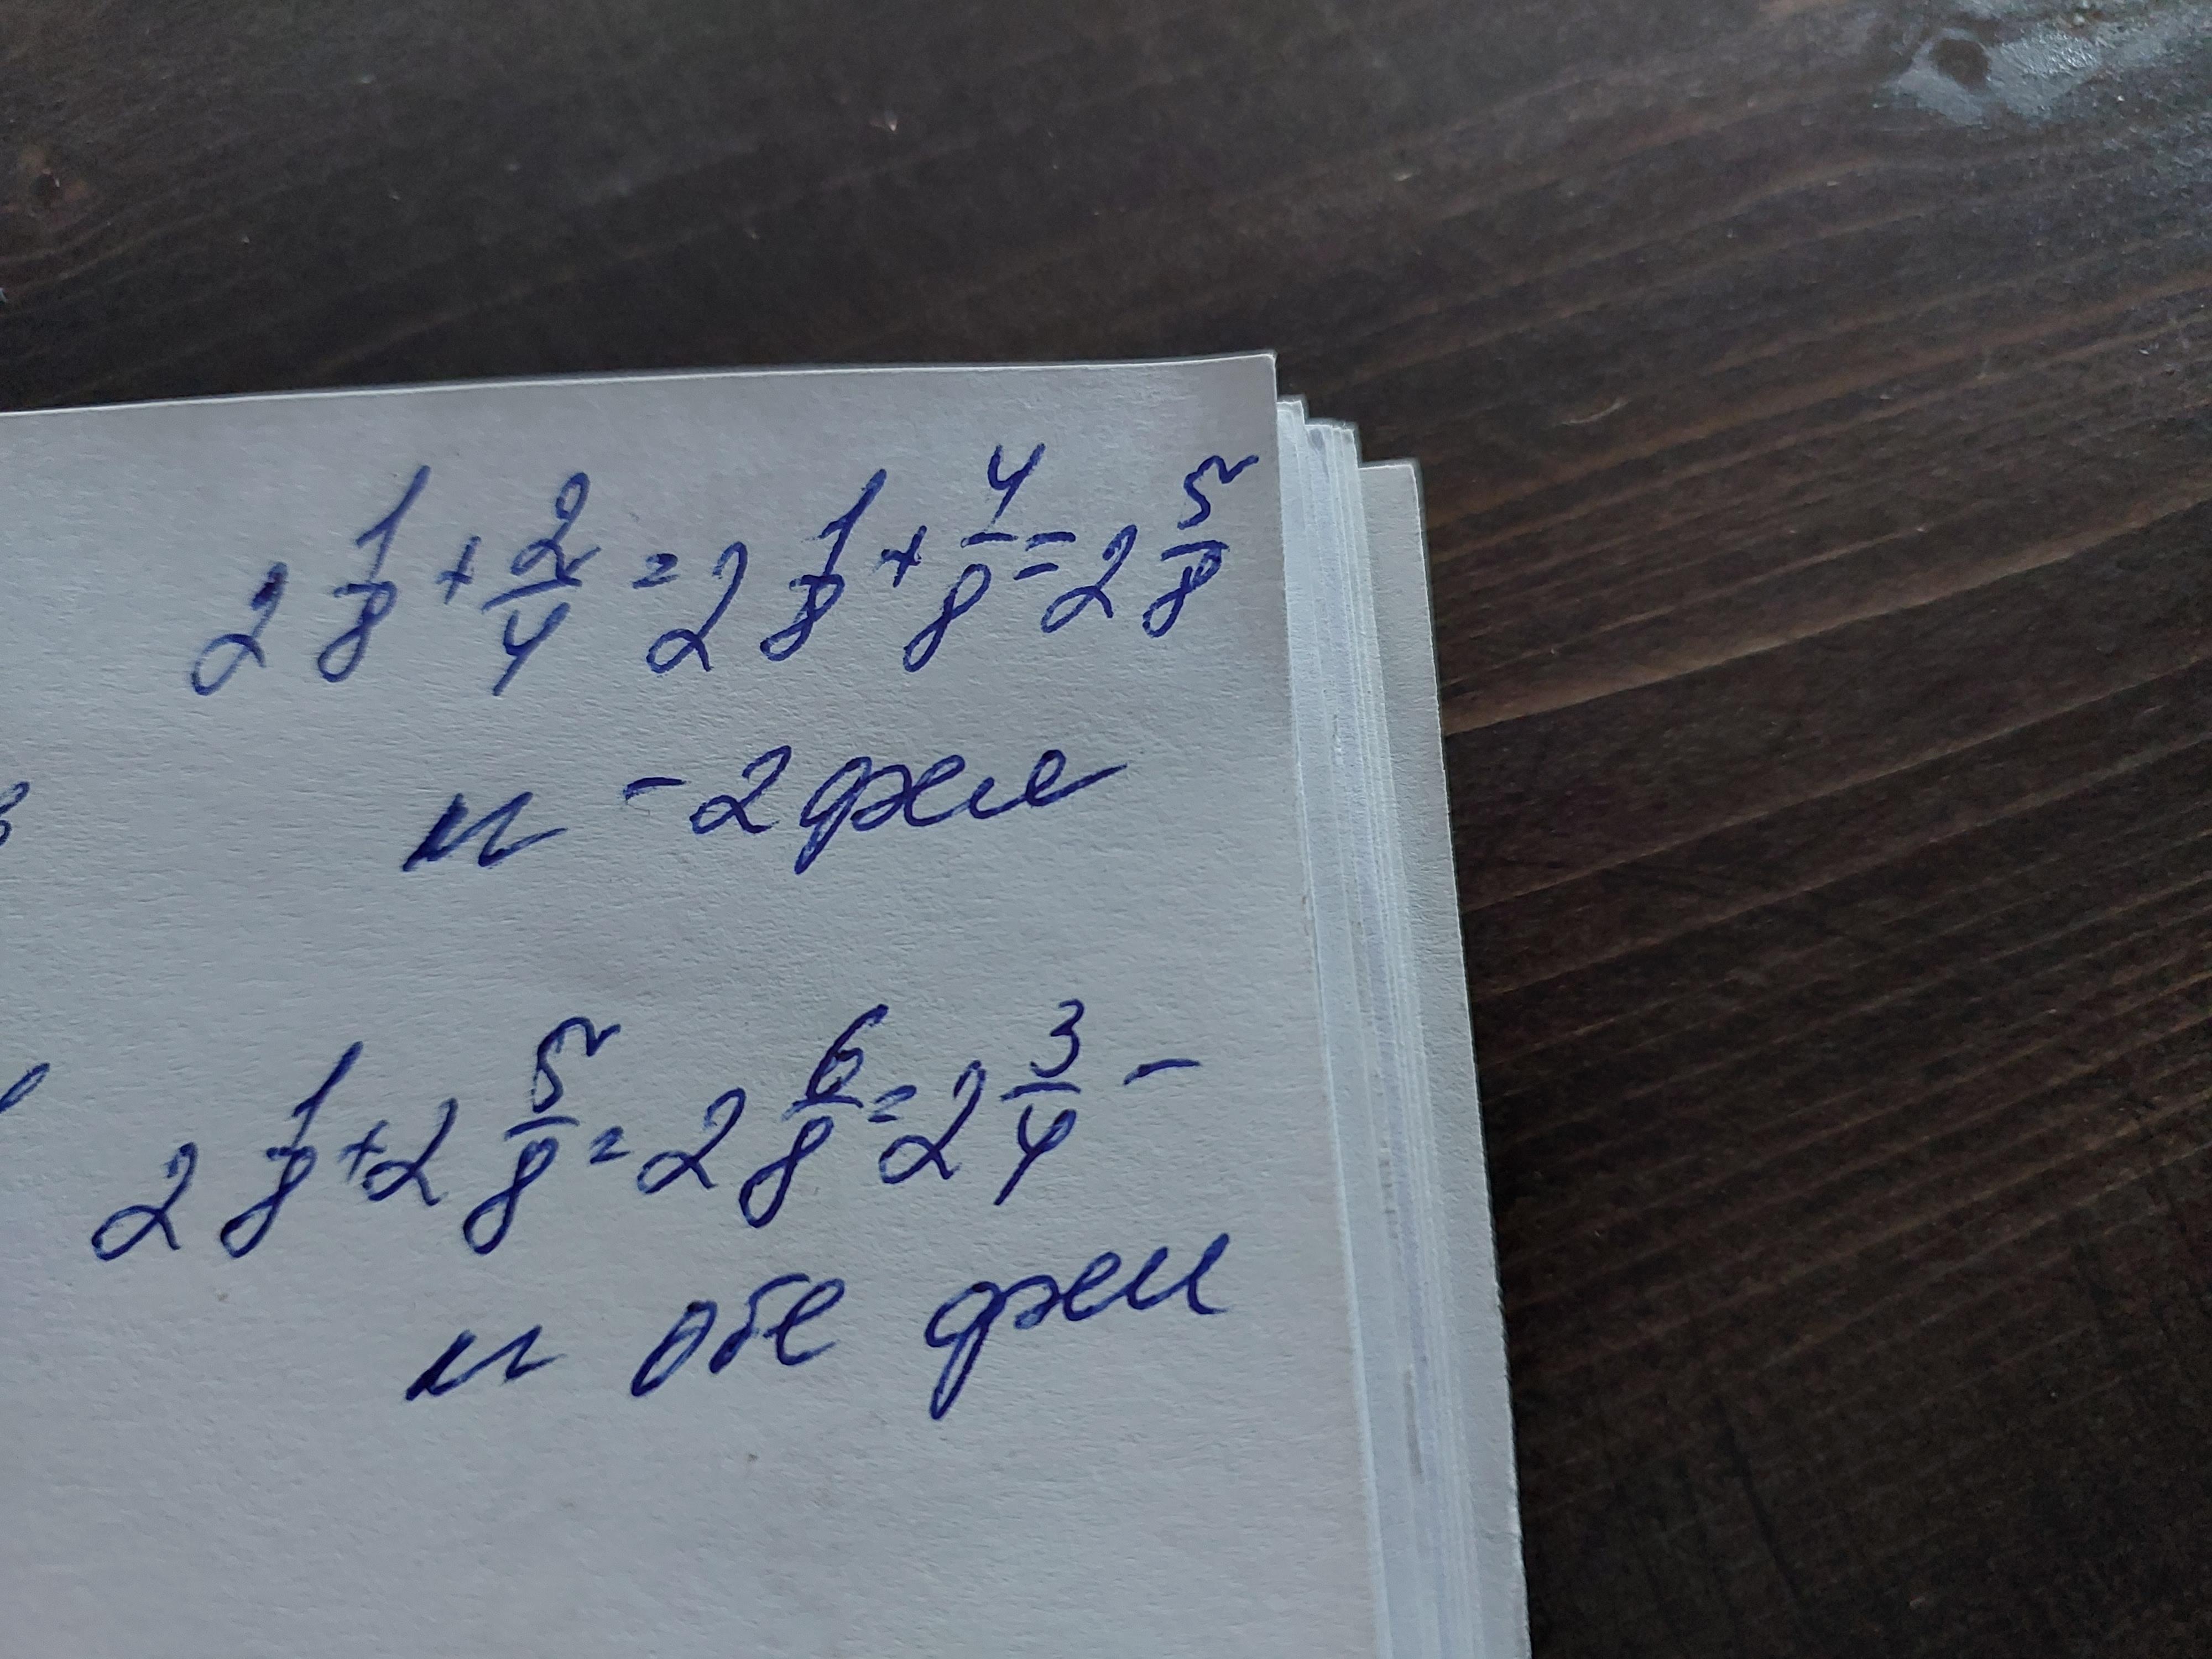 2 1/8 + 2/4 = 2 1/8 + 4/8 = 2 5/8
и - 2 джи
2 1/8 + 2 5/8 = 2 6/8 = 2 3/4 -
и обе